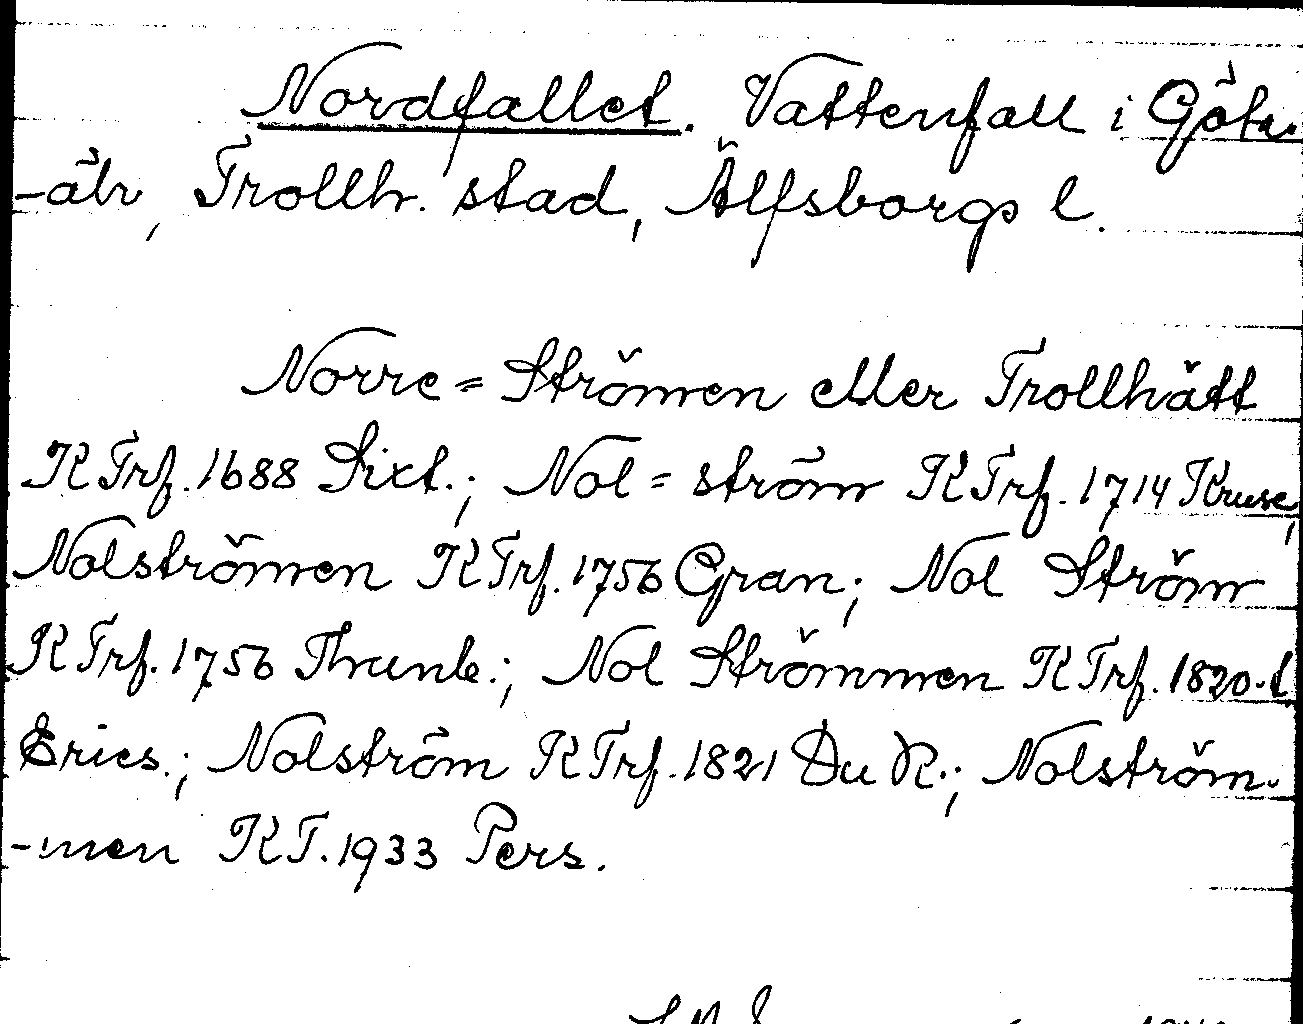 Nordfallet. Vattenfall i Göta-
-älv, Trollh. stad, Älfsborgs l.
Norre=Strömen eller Trollhätt
KTrf. 1688 Sixt.; Nol=ström KTrf. 1714 Kruse,
Nolströmen KTrf. 1756 Gran; Nol Ström
KTrf. 1756 Thunb.; Nol Strömmen KTrf. 1820-t
Erics.; Nolström KTrf. 1821 Du R.; Nolström-
-men KT. 1933 Pers.